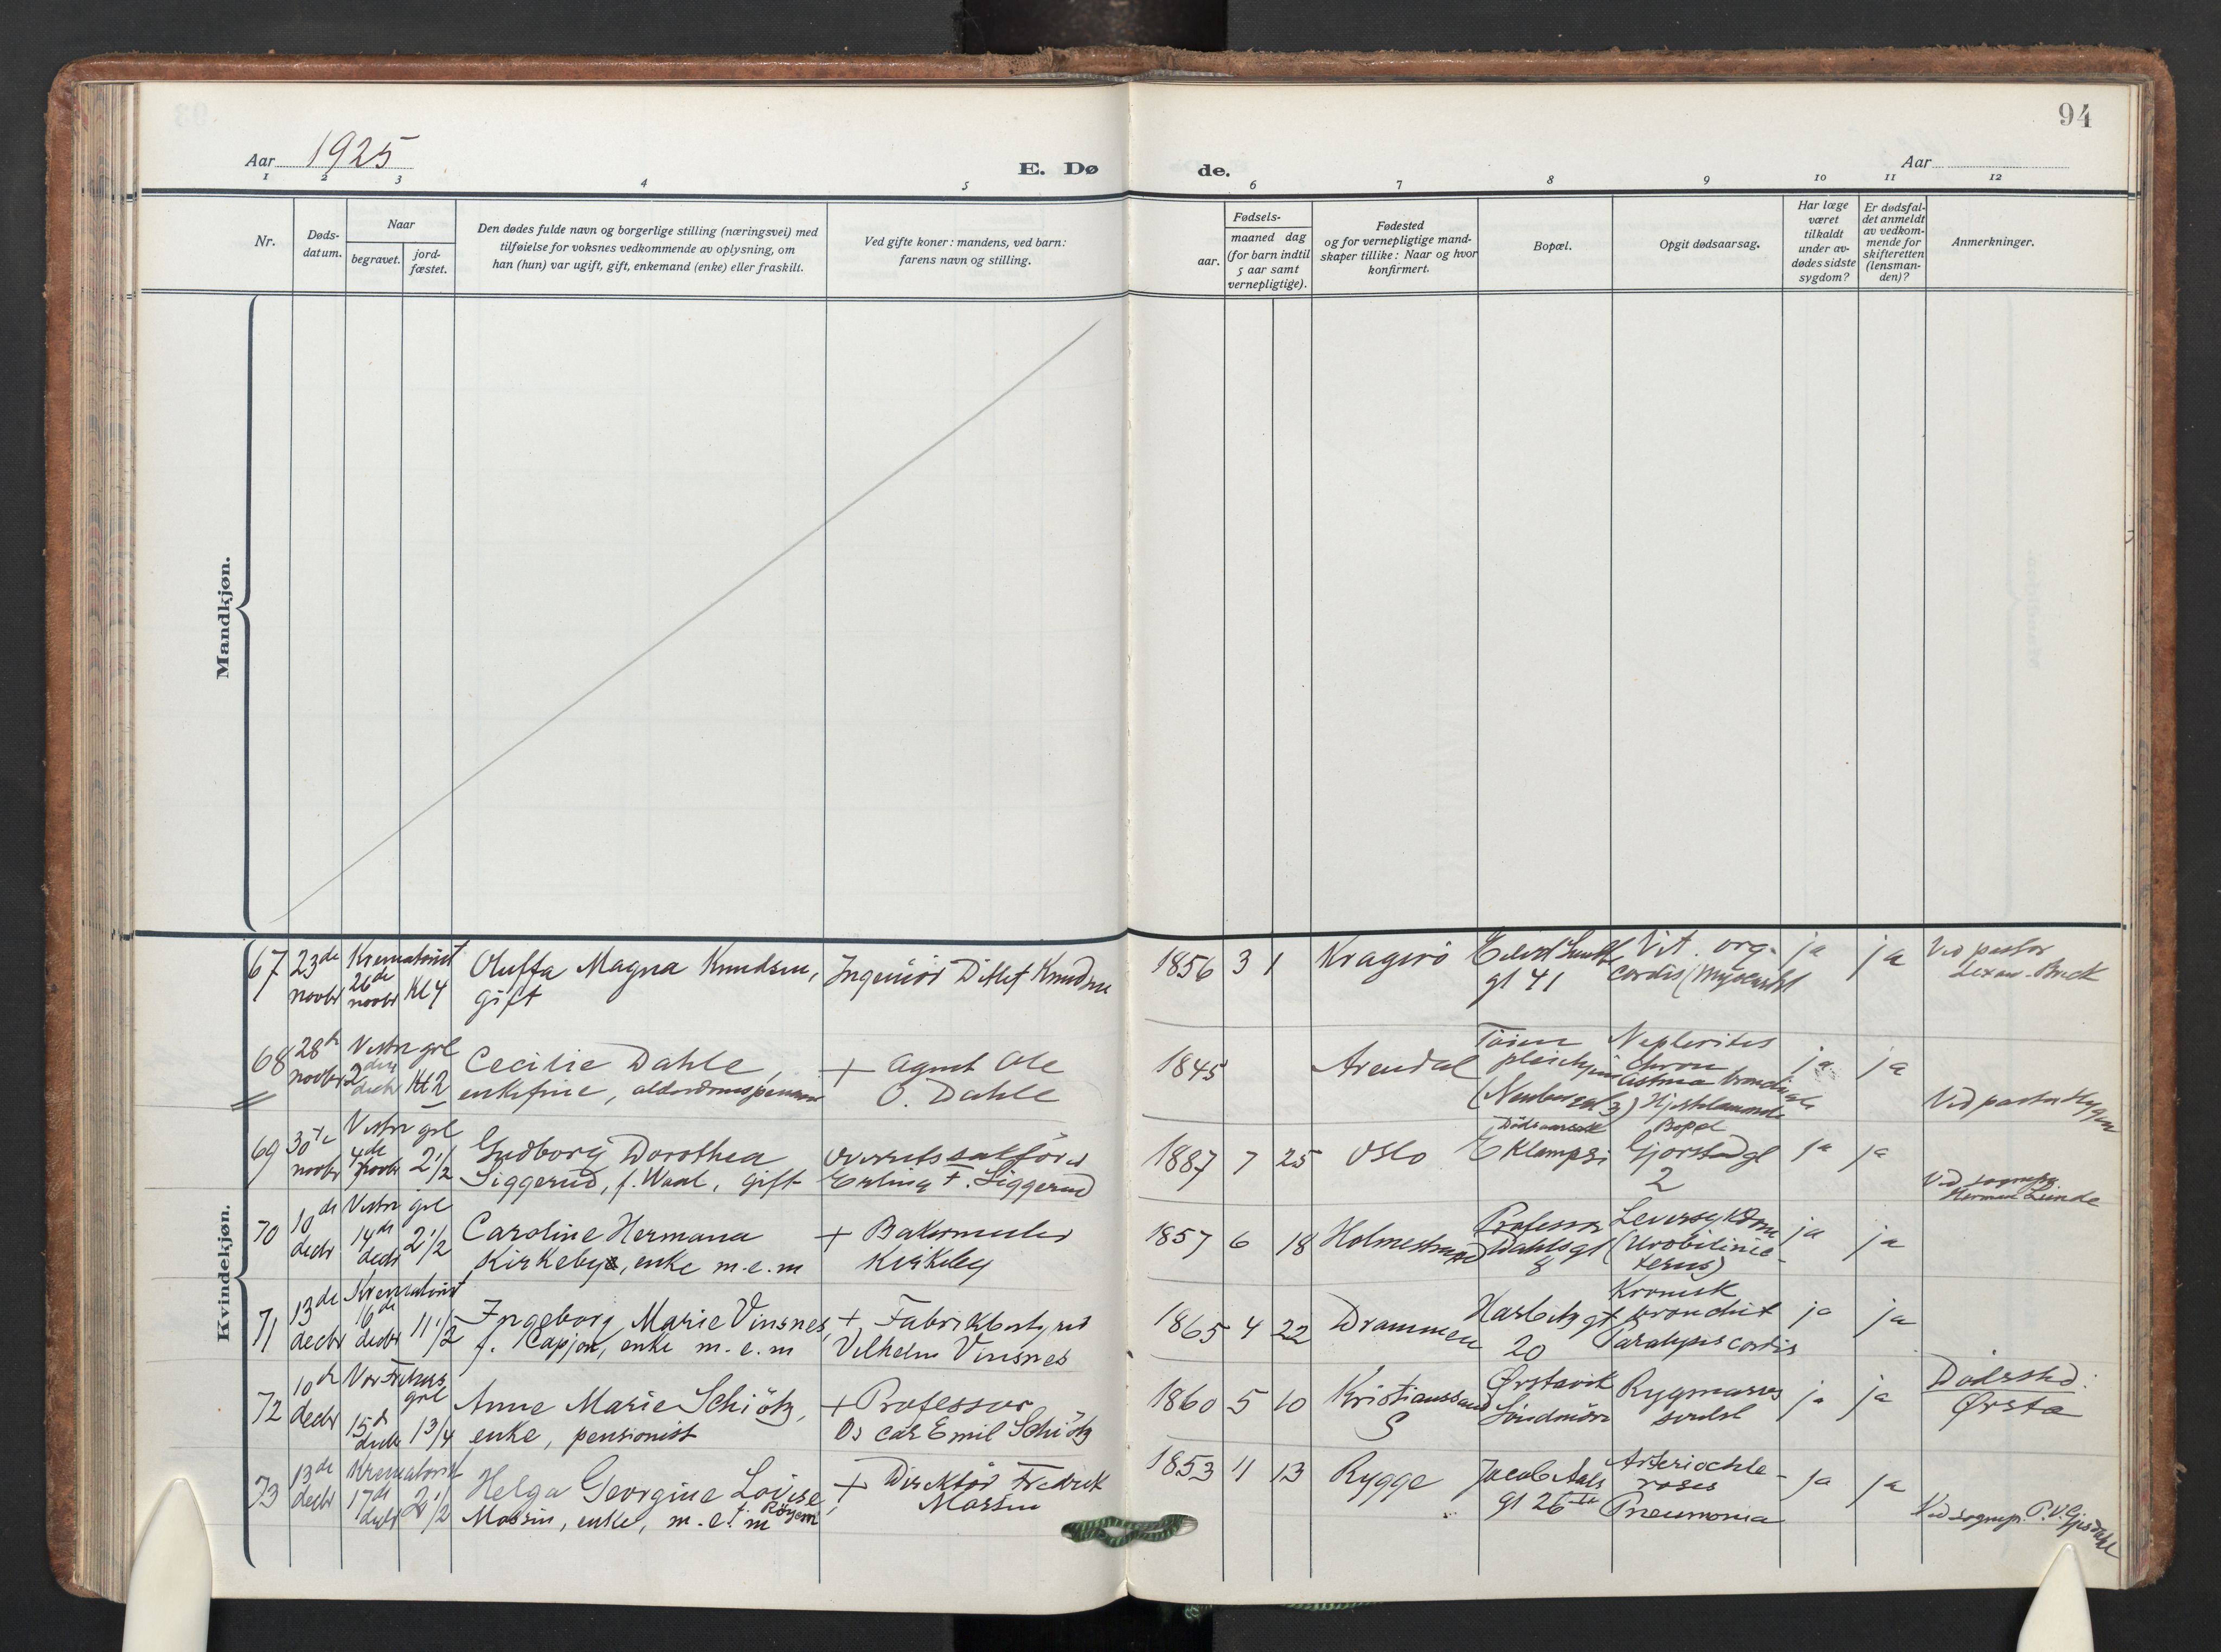 94
Aar 1925
E. Dø
de.
Aar
1 2 3 4 5 6 7 8 9 10 11 12
Nr.
Døds-
datum.
Naar
begravet.
jord-
fæstet.
Den dødes fulde navn og borgerlige stilling (næringsvei) med
tilføielse for voksnes vedkommende av oplysning, om
han (hun) var ugift, gift, enkemand (enke) eller fraskilt.
Ved gifte koner: mandens, ved barn:
farens navn og stilling.
Fødsels-
aar.
maaned dag
(for barn indtil
5 aar samt
vernepligtige).
Fødested
og for vernepligtige mand-
skaper tillike: Naar og hvor
konfirmert.
Bopæl.
Opgit dødsaarsag.
Har læge
været
tilkaldt
under av-
dødes sidste
sygdom?
Er dødsfal-
det anmeldt
av vedkom-
mende for
skifteretten
(lensman-
den)?
Anmerkninger.
Mandkjøn.
Kvindekjøn.
67 23de novbr
26de novbr Kl 4
Oluffa Magna Knudsen,
gift
Ingeniør Ditlef Knudsen
1856 3 1 Kragerö
gt 41
Vit. org.
cordis
ja ja
Ved pastor
68 28de novbr
Vestre grl
2den decbr Kl 2
Cecilie Dahle,
+ Agent Ole
O. Dahle
1845 Arendal
Töien
pleiehjem
Nephritis
chron
Astma
ja ja
Ved pastor Hygen
69 30te novbr
Vestre grl
4de 2 1/2
Gudborg Dorothea
Siggerud, f. Waal, gift
Overretssakförer
Erling F. Siggerud
1887 7 25 Oslo
Dödsaarsak
Eklampsi
Bopæl
Gjörstadgt
2
ja ja
Ved sognepr.
Herman Lunde
70 10de decbr
Vestre grl
14de decbr 2 1/2
Caroline Hermana
Kirkeby, enke m.e.m
+ Bakermester
Kirkeby
1857 6 18 Holmestrand
Professor
Dahlsgt
8
Leversykdom
(Urobilinic-
terus)
ja ja
71 13de decbr
16de decbr 11 1/2
Ingeborg Marie Vinsnes,
f. Capjon, enke m.e.m
+ Fabrikbestyrer
Vilhelm Vinsnes
1865 4 22 Drammen
Harbitzgt
20
Kronisk
bronchit
Paralysis cordis
ja ja
72 10de decbr
Vor Frelsers
grl
15de 1 3/4
Anne Marie Schiötz,
enke, pensionist
+ Professor
Oscar Emil Schiötz
1860 5 10 Kristianssand
S
Ørstavik
Söndmöre
Rygmarvs
svulst
ja ja
Dödssted:
Ørsta
73 13de decbr
17de 2 1/2
Helga Georgine Lovise
Massin, enke, m.e.m
+ Direktör Fredrik
Massin
1853 11 13 Rygge
Jacob Aals
gt 26
Arteriochle-
roses
Pneumonia
ja ja
Ved sognepr. P.V. Gjesdahl